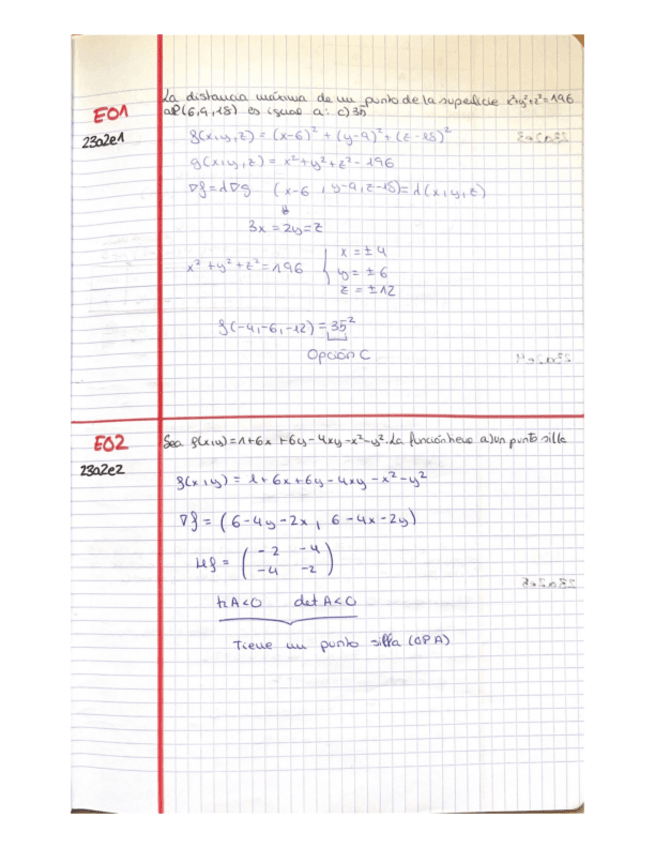 La distancia máxima de un punto de la superficie x²+y²+z²=196
E01
a P(6,9,18) es igual a: c) 35
23a2e1
f(x,y,z) = (x-6)² + (y-9)² + (z-18)²
g(x,y,z) = x²+y²+z² - 196
∇f=λ∇g (x-6, y-9, z-18)=λ(x,y,z)
⇓
3x = 2y = z
x² + y² + z² = 196 { x = ±4
y = ±6
z = ±12
f(-4,-6,-12) = 35²
Opción C
E02
Sea f(x,y)=1+6x+6y-4xy-x²-y². La función tiene a) un punto silla
23a2e2
f(x,y) = 1+6x+6y-4xy-x²-y²
∇f = (6-4y-2x, 6-4x-2y)
Hf = ( -2 -4
-4 -2 )
trA<0 det A<0
Tiene un punto silla (OP A)